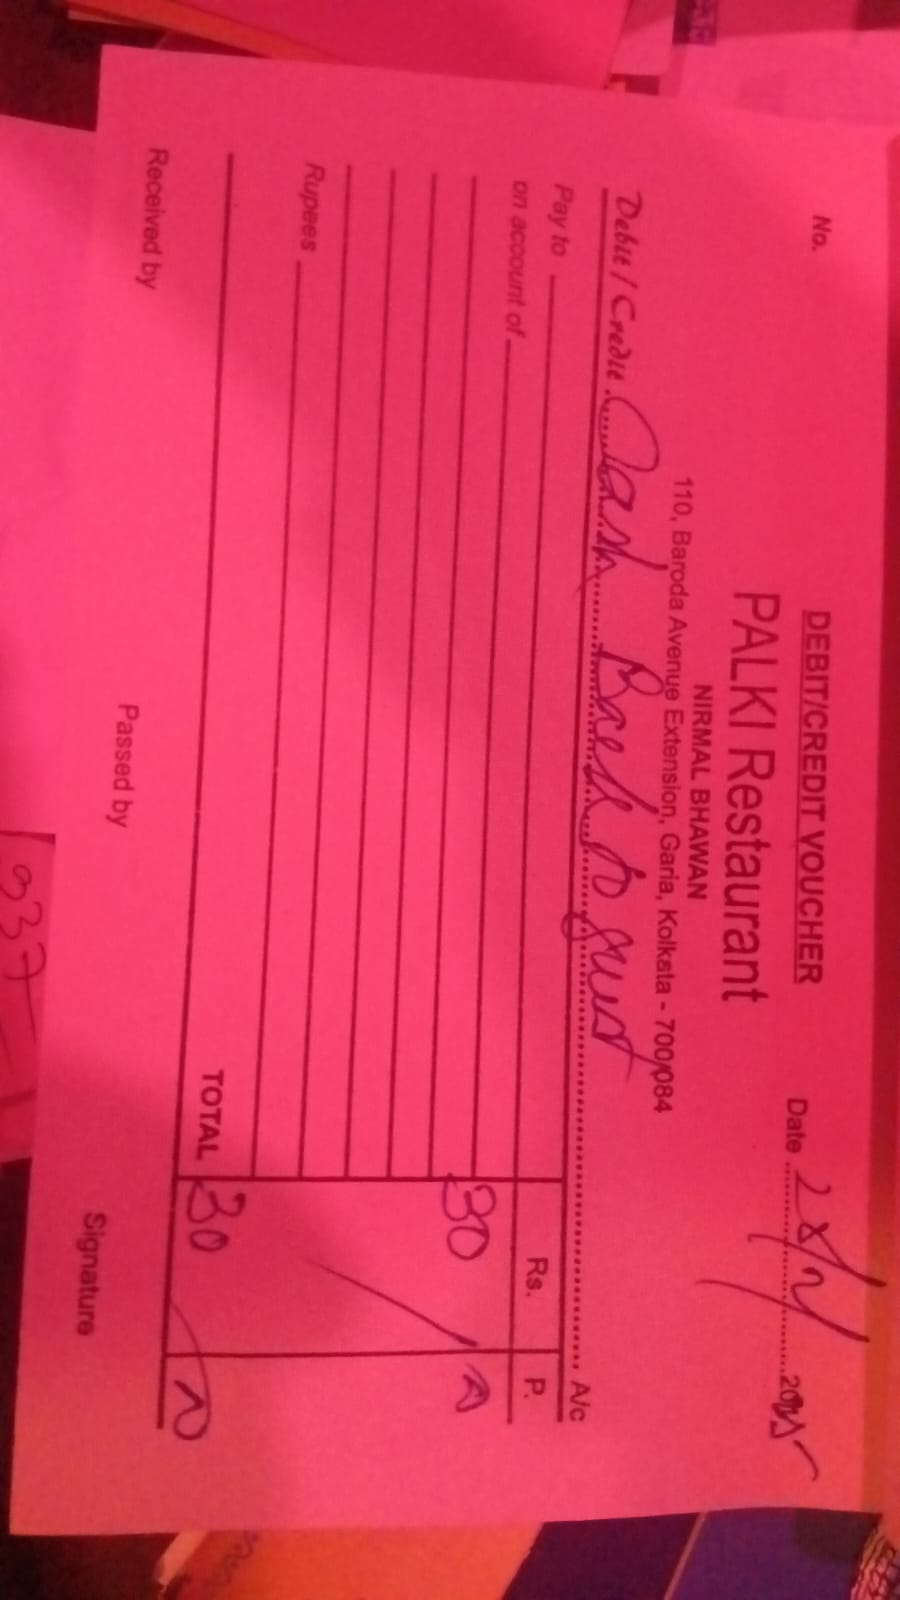 DEBIT/CREDIT VOUCHER
No.
PALKI Restaurant
Date
NIRMAL BHAWAN
110, Baroda Avenue Extension, Garia, Kolkata - 700084
Debit / Credit Cash Back to guest A/c
Pay to Rs. P.
on account of 30
Rupees
TOTAL 30
Received by Passed by Signature
937